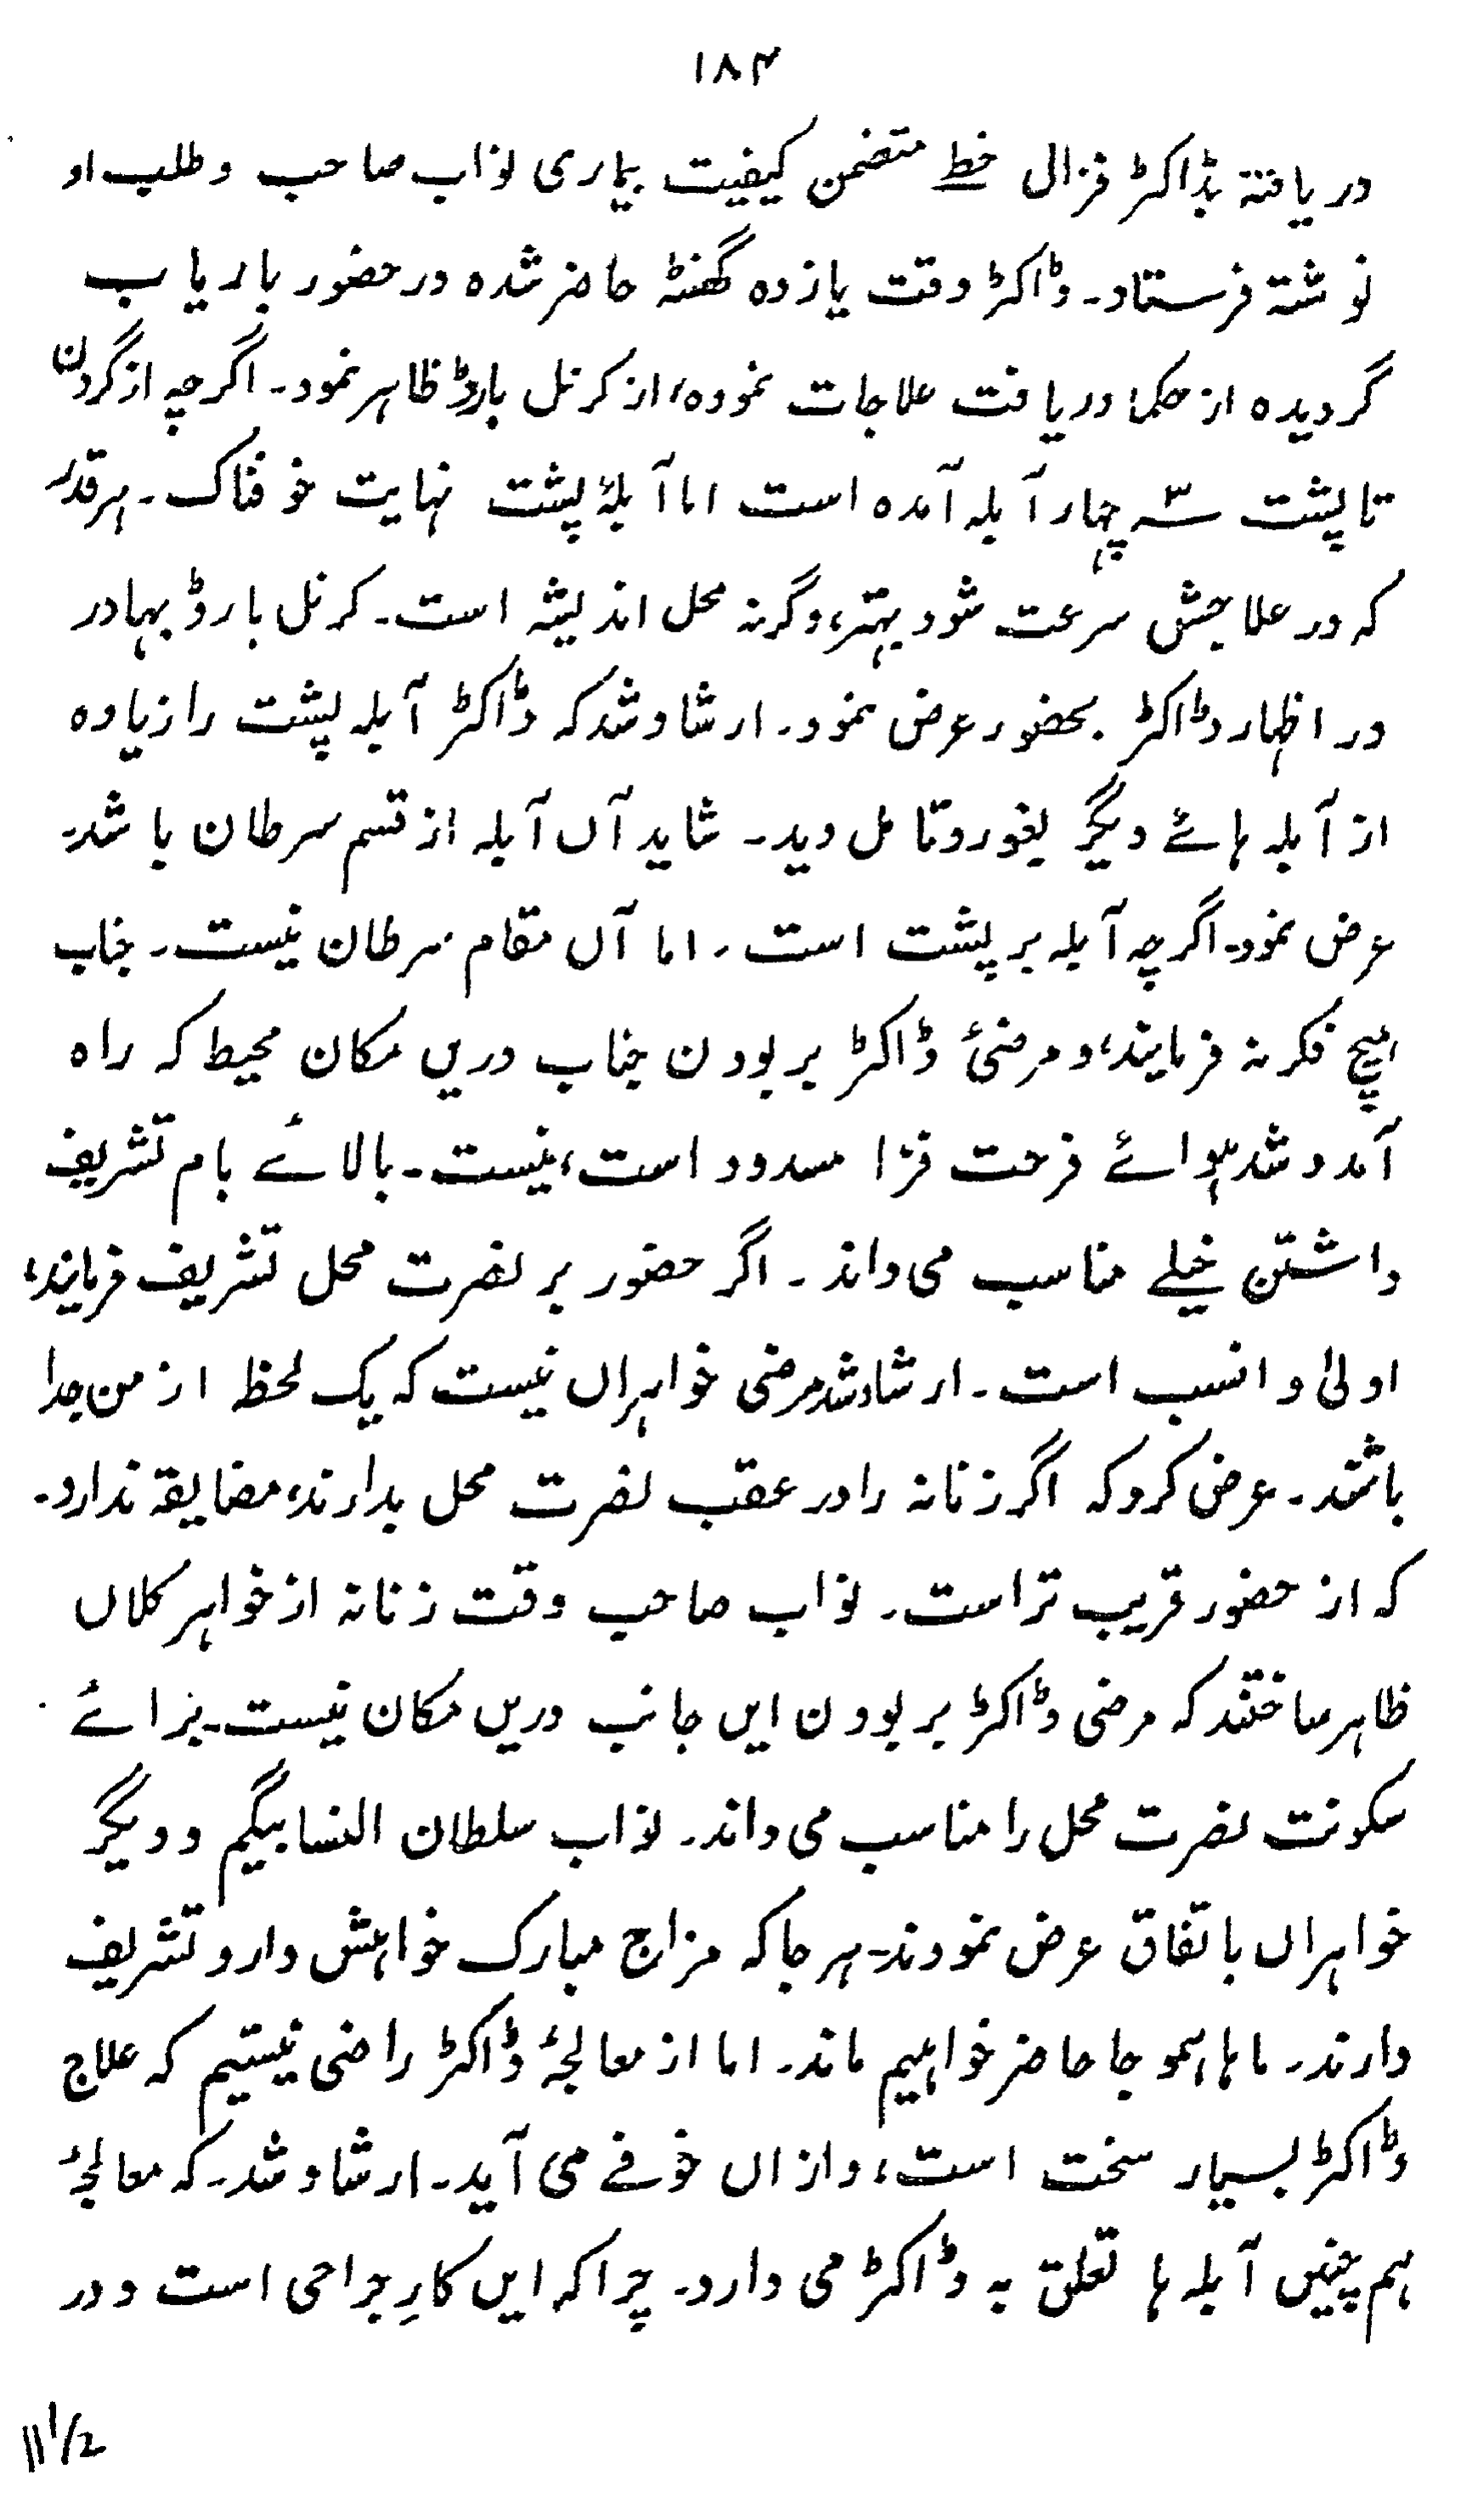 ۱۸۴
دریافتہ بڈاکٹر فزال خطے متضمن کیفیت بیماری نواب صاحب و طلب او
نوشتہ فرستاد۔ ڈاکٹر وقت یازدہ گھنٹہ حاضر شدہ در حضور باریاب
گردیدہ از حکما دریافت علاجات نمودہ، از کرنل بارڈ ظاہر نمود۔ اگرچہ از گردن
تا پشت سہ چہار آبلہ آمدہ است اما آبلۂ پشت نہایت خوفناک۔ ہر قدر
کہ در علاجش سرعت شود بہتر، وگرنہ محل اندیشہ است۔ کرنل بارڈ بہادر
در اظہار ڈاکٹر بحضور عرض نمود۔ ارشاد شد کہ ڈاکٹر آبلہ پشت را زیادہ
از آبلہ ہائے دیگر بغور و تامل دید۔ شاید آں آبلہ از قسم سرطان باشد۔
عرض نمود۔ اگرچہ آبلہ بر پشت است۔ اما آں مقام سرطان نیست۔ جناب
ہیچ فکر نہ فرمایند، و مرضئ ڈاکٹر بر بودن جناب دریں مکان محیط کہ راہ
آمد و شد ہوائے فرحت فزا مسدود است، نیست۔ بالائے بام تشریف
داشتن خیلے مناسب می داند۔ اگر حضور بر نصرت محل تشریف فرمایند،
اولیٰ و انسب است۔ ارشاد شد مرضی خواہراں نیست کہ یک لحظہ از من جدا
باشند۔ عرض کرد کہ اگر زنانہ را در عقب نصرت محل بدارند، مضایقہ ندارد۔
کہ از حضور قریب تر است۔ نواب صاحب وقت زنانہ از خواہر کلاں
ظاہر ساختند کہ مرضی ڈاکٹر بر بودن ایں جانب دریں مکان نیست۔ برائے
سکونت نصرت محل را مناسب می داند۔ نواب سلطان النسا بیگم و دیگر
خواہراں باتفاق عرض نمودند۔ ہر جا کہ مزاج مبارک خواہش دارد تشریف
دارند۔ ماہا ہموجا حاضر خواہیم ماند۔ اما از معالجۂ ڈاکٹر راضی نیستیم کہ علاج
ڈاکٹر بسیار سخت است، و ازاں خوفے می آید۔ ارشاد شد۔ کہ معالجۂ
ہم چنیں آبلہ ہا تعلق بہ ڈاکٹر می دارد۔ چرا کہ ایں کارِ جراحی است و در
11 1/2